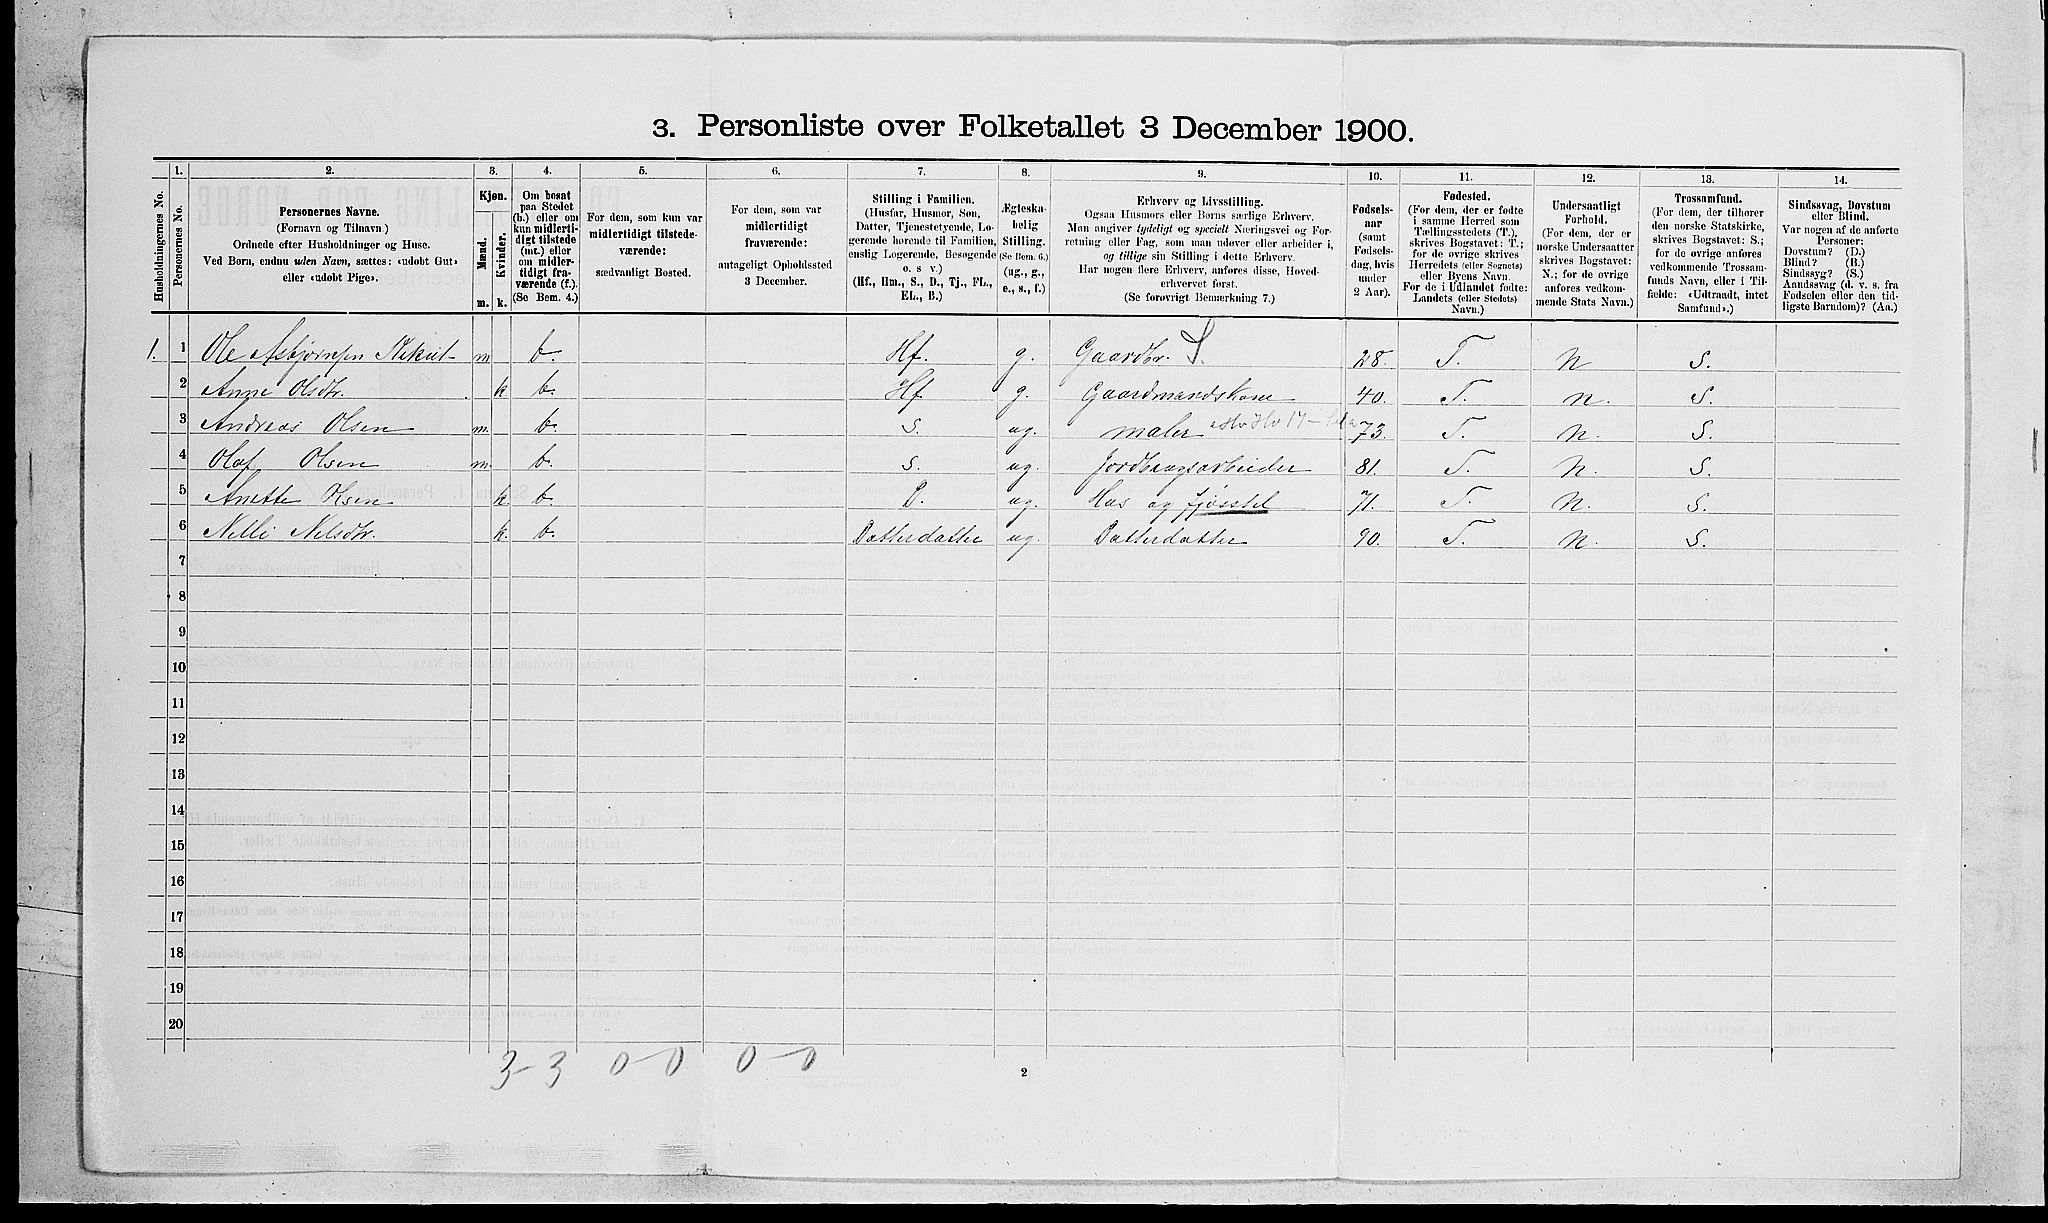 3. Personliste over Folketallet 3 December 1900.
1. 2. 3. 4. 5. 6. 7. 8. 9. 10. 11. 12. 13. 14.
Husholdningernes No.
Personernes No.
Personernes Navne.
(Fornavn og Tilnavn.)
Ordnede efter Husholdninger og Huse.
Ved Børn, endnu uden Navn, sættes: «udøbt Gut»
eller «udøbt Pige».
Kjøn.
Mænd.
Kvinder.
m. k.
Om bosat
paa Stedet
(b.) eller om
kun midlerti-
digt tilstede
(mt.) eller
om midler-
tidigt fra-
værende (f.).
(Se Bem. 4.)
For dem, som kun var
midlertidigt tilstede-
værende:
sædvanligt Bosted.
For dem, som var
midlertidigt
fraværende:
antageligt Opholdssted
3 December.
Stilling i Familien.
(Husfar, Husmor, Søn,
Datter, Tjenestetyende, Lo-
gerende hørende til Familien,
enslig Logerende, Besøgende
o. s v.)
(Hf., Hm., S., D., Tj., FL.,
EL., B.)
Ægteska-
belig
Stilling.
(Se Bem. 6.)
(ug., g.,
e., s., f.)
Erhverv og Livsstilling.
Ogsaa Husmors eller Børns særlige Erhverv.
Man angiver tydeligt og specielt Næringsvei og For-
retning eller Fag, som man udøver eller arbeider i,
og tillige sin Stilling i dette Erhverv.
Har nogen flere Erhverv, anføres disse, Hoved-
erhvervet først.
(Se forøvrigt Bemærkning 7.)
Fødsels-
aar
(samt
Fødsels-
dag, hvis
under
2 Aar).
Fødested.
(For dem, der er fødte
i samme Herred som
Tællingsstedets (T.),
skrives Bogstavet: T.;
for de øvrige skrives
Herredets (eller Sognets)
eller Byens Navn.
For de i Udlandet fødte:
Landets (eller Stedets)
Navn.)
Undersaatligt
Forhold.
(For dem, der er
norske Undersaatter
skrives Bogstavet:
N.; for de øvrige
anføres vedkom-
mende Stats Navn.)
Trossamfund.
(For dem, der tilhører
den norske Statskirke,
skrives Bogstavet: S.;
for de øvrige anføres
vedkommende Trossam-
funds Navn, eller i Til-
fælde: «Udtraadt, intet
Samfund».)
Sindssvag, Døvstum
eller Blind.
Var nogen af de anførte
Personer:
Døvstum? (D.)
Blind? (B.)
Sindssyg? (S.)
Aandssvag (d. v. s. fra
Fødselen eller den tid-
ligste Barndom)? (Aa.)
1. 1 Ole Asbjørnsen m b. Hf. g. Gaardbr. S. 28. T. N S.
2 Anne Olsdtr. k b. Hf g. Gaardmandskone 40. T. N. S.
3 Andreas Olsen m. b. S. ug. maler 73. T. N. S.
4 Olaf Olsen m. b. S. ug. Jordbrugsarbeider 81. T. N. S.
5 Anette Olsen k b. D. ug. Hus og fjøsstel 71. T. N. S.
6 Nelli Nilsdtr. k. b. Datterdatter ug. Datterdatter 90. T. N. S.
7
8
9
10
11
12
13
14
15
16
17
18
19
20
3-3 0-0 0-0
2